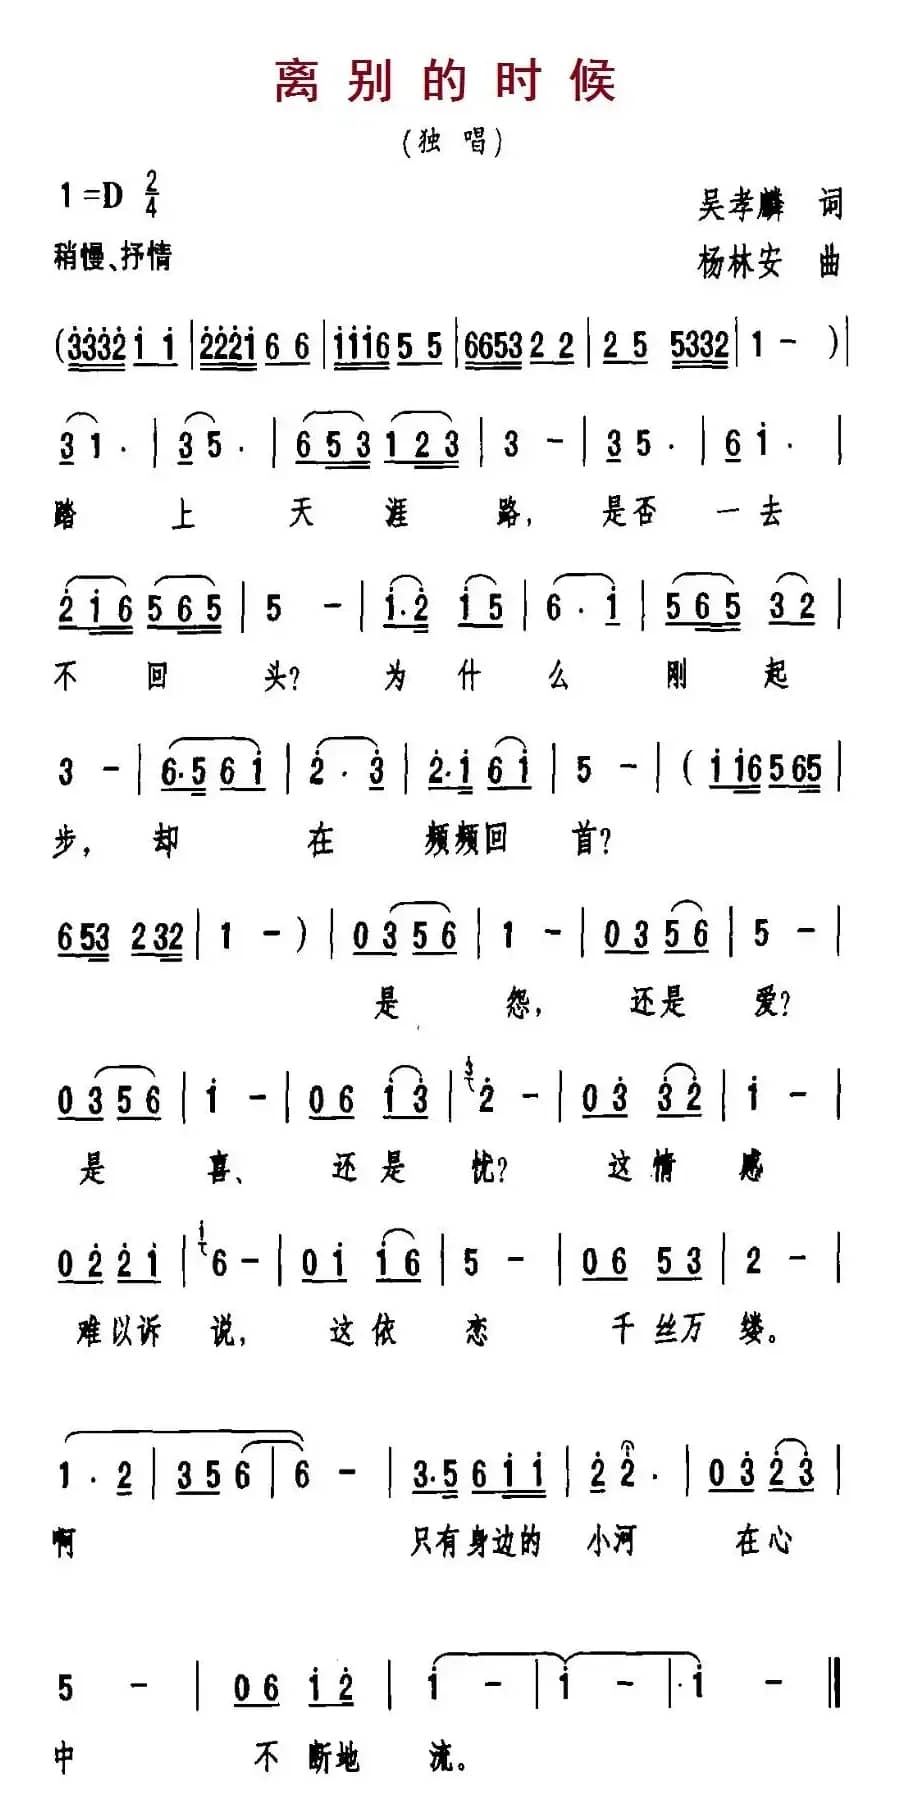 离别的时候
（独唱）
1=D 2/4
吴孝麟 词
稍慢、抒情
杨林安 曲
(3̇3̇3̇2̇ 1̇ 1̇ | 2̇2̇2̇1̇ 6 6 | 1̇1̇1̇6 5 5 | 6653 2 2 | 2 5 5332 | 1 - )|
3 1 · | 3 5 · | 6 5 3 1 2 3 | 3 - | 3 5 · | 6 1̇ · |
踏 上 天 涯 路， 是否 一去
2̇ 1̇ 6 5 6 5 | 5 - | 1̇·2̇ 1̇ 5 | 6 · 1̇ | 5 6 5 3 2 |
不 回 头？ 为 什 么 刚 起
3 - | 6·5 6 1̇ | 2̇ · 3̇ | 2̇·1̇ 6 1̇ | 5 - | ( 1̇ 1̇6 5 65 |
步， 却 在 频频回 首？
6 53 2 32 | 1 - ) | 0 3 5 6 | 1 - | 0 3 5 6 | 5 - |
是 怨， 还是 爱？
0 3 5 6 | 1̇ - | 0 6 1̇ 3̇ | 3̇ 2̇ - | 0 3̇ 3̇ 2̇ | 1̇ - |
是 喜、 还是 忧？ 这情 感
0 2̇ 2̇ 1̇ | 1̇ 6 - | 0 1̇ 1̇ 6 | 5 - | 0 6 5 3 | 2 - |
难以诉 说， 这依 恋 千丝万 缕。
1 · 2 | 3 5 6 | 6 - | 3·5 6 1̇ 1̇ | 2̇ 2̇ · | 0 3̇ 2̇ 3̇ |
啊 只有身边的 小河 在心
5 - | 0 6 1̇ 2̇ | 1̇ - | 1̇ - | · 1̇ - ‖
中 不断地 流。